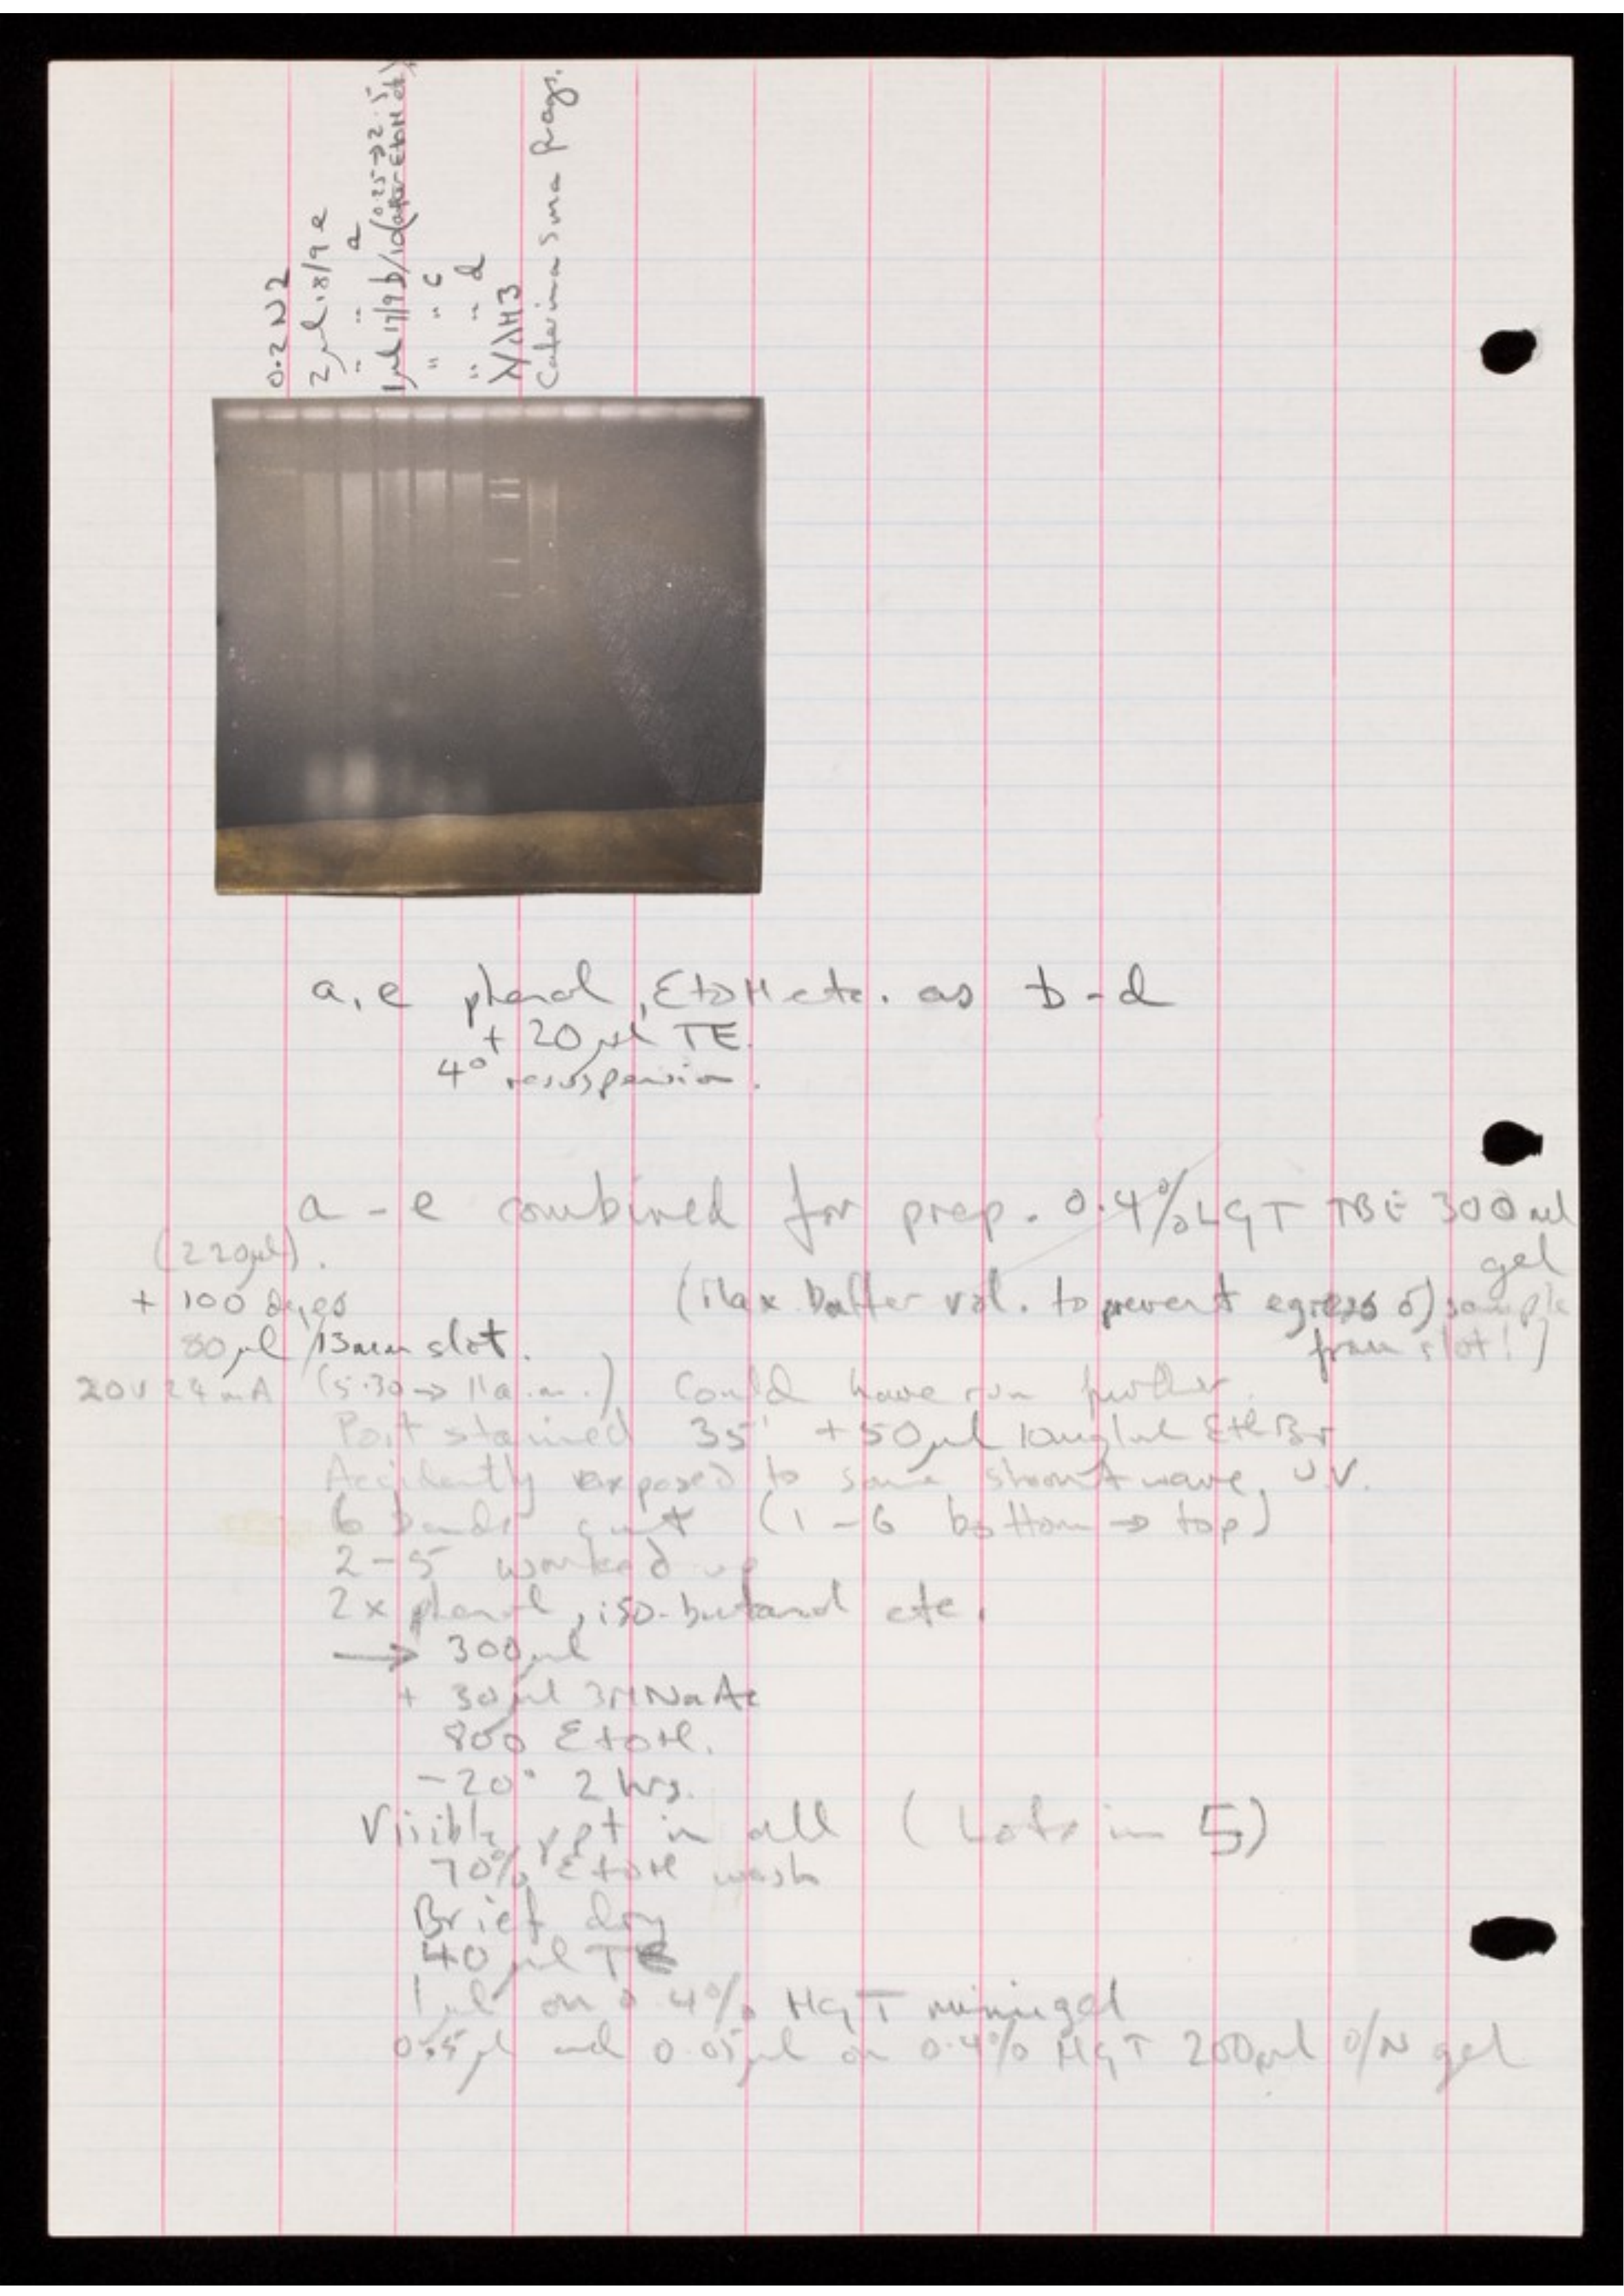 0.2 N2
2µl 18/9 e
" " a
1µl 17/9 b/id (0.25→2.5
after EtOH etc)
" " c
" " d
λ/λH3
Caterina Sma frags.
a, e phenol, EtOH etc. as b - d
+ 20µl TE.
4° resuspension.
a - e combined for prep. 0.4% LGT TBE 300ml
gel
(220µl).
+ 100 dyes
(Max buffer vol. to prevent egress of sample
from slot!)
80µl /13mm slot.
20V 24mA (5.30 → 11a.m.) Could have run further.
Post stained 35' + 50µl 10mg/ml EtBr
Accidently exposed to some short wave U.V.
6 bands cut (1 - 6 bottom → top)
2 - 5 worked up
2 x phenol, iso-butanol etc.
→ 300µl
+ 30µl 3M NaAc
800 EtOH.
-20° 2 hrs.
Visible ppt in all (Lots in 5)
70% EtOH wash
Brief dry
40µl TE
1µl on 0.4% HGT minigel
0.5µl and 0.05µl on 0.4% HGT 200ml O/N gel